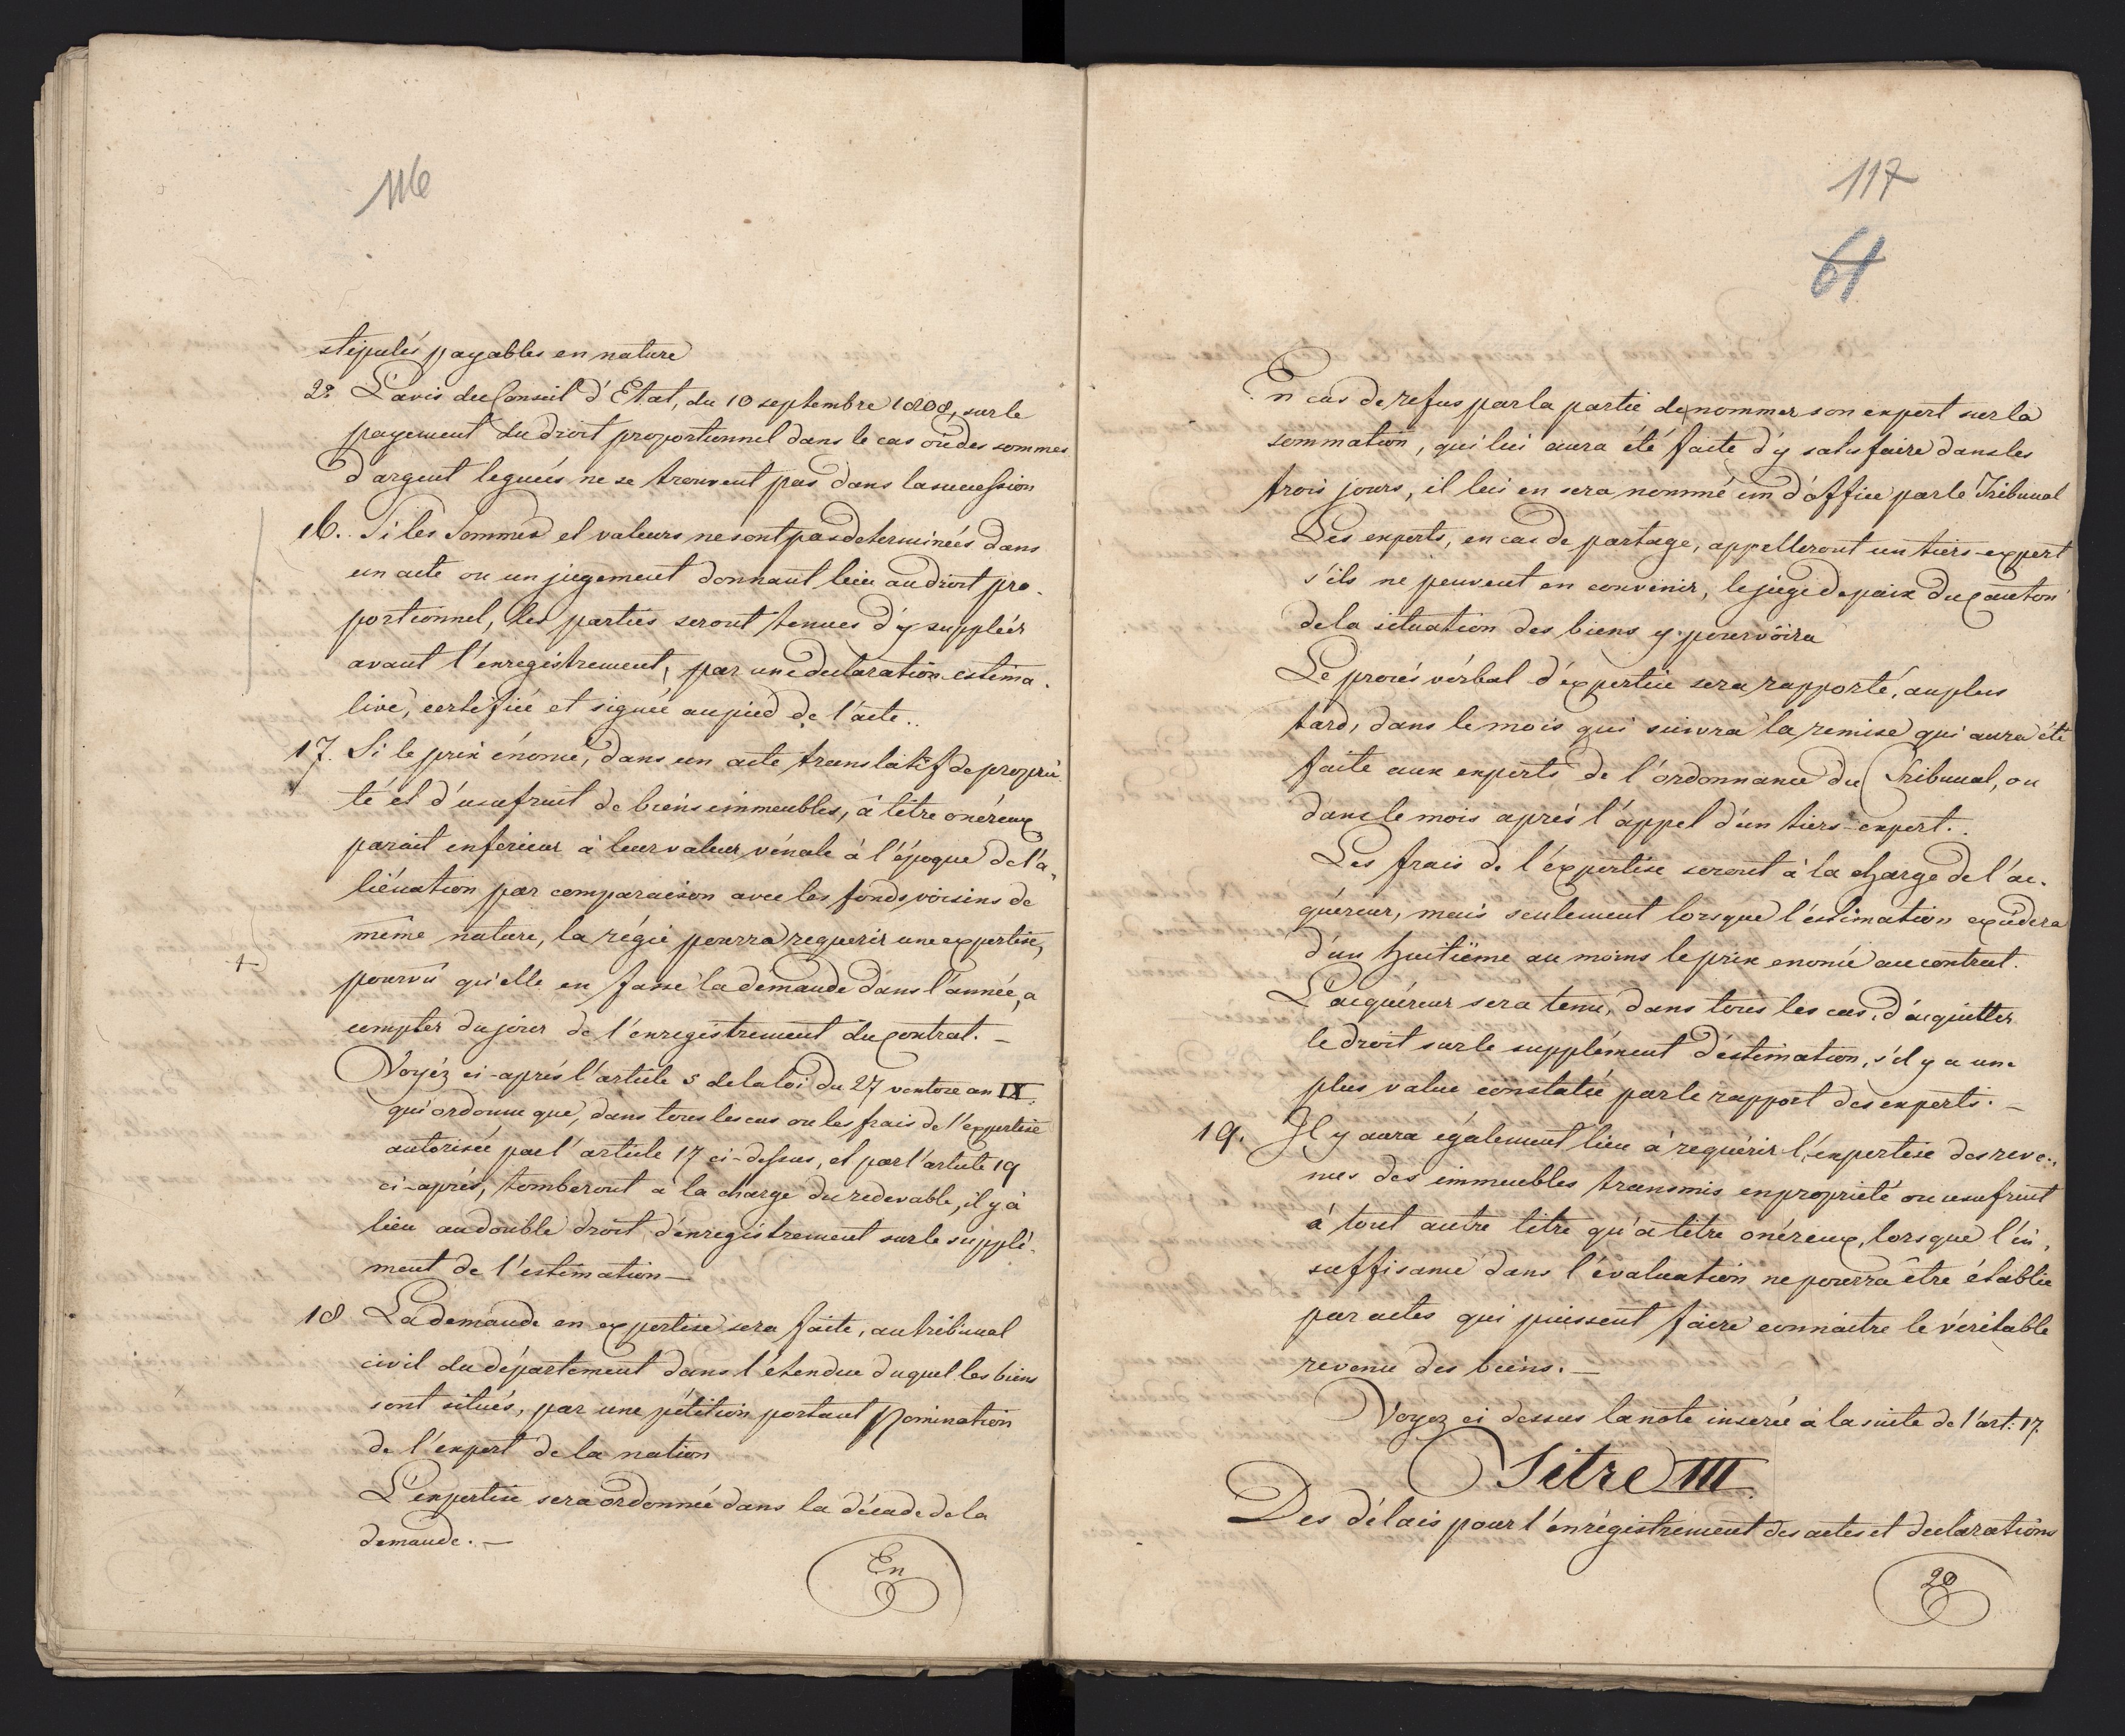 116
stipulés payables en nature
2º L'avis du Conseil d'Etat, du 10 septembre 1808, sur le
payement du droit proportionnel dans le cas où des sommes
d'argent leguées ne se trouvent pas dans la succession
16. Si les Sommes et valeurs ne sont pas determinées dans
un acte ou un jugement donnant lieu au droit pro-
portionnel, les parties seront tenues d'y suppléer
avant l'enregistrement, par une declaration estima-
tive, certifiée et signée au pied de l'acte..
17. Si le prix énoncé, dans un acte translatif de proprié-
té et d'usufruit de biens immeubles, à titre onéreux
parait inferieur à leur valeur vénale à l'époque de l'a-
liénation par comparaison avec les fonds voisins de
même nature, la régie pourra requerir une expertise,
pourvû qu'elle en fasse la demande dans l'année, a
compter du jour de l'enregistrement du Contrat. –
Voyéz ci-après l'article 5 de la loi du 27 ventose an IX.
qui ordonne que, dans tous les cas ou les frais de l'expertise
autorisée par l'article 17 ci-dessus, et par l'article 19
ci-après, tomberont à la charge du redevable, il y à
lieu au double droit d'enregistrement sur le supplé-
ment de l'estimation –
18 La demande en expertise sera faite, au tribunal
civil du département dans l'étendue duquel les biens
sont situés, par une pétition portant Nomination
de l'expert de la nation
L'expertise sera ordonnée dans la décade de la
demande. –
En
117
61
En cas de refus par la partie de nommer son expert sur la
sommation, qui lui aura été faite d'y satisfaire dans les
trois jours, il lui en sera nommé un d'office par le Tribunal
Les experts, en cas de partage, appelleront un tiers-expert
s'ils ne peuvent en convenir, le juge de paix du Canton
de la situation des biens y pourvoira
Le procés vérbal d'éxpertise sera rapporté, au plus
tard, dans le mois qui suivra la remise qui aura été
faite aux experts de l'ordonnance du Tribunal, ou
dans le mois après l'appel d'un tiers-expert.
Les frais de l'éxpertise seront à la charge de l'ac-
quéreur, mais seulement lorsque l'estimation excédera
d'un huitiëme au moins le prix enoncé au contrat.
L'acquéreur sera tenu, dans tous les cas, d'acquitter
le droit sur le supplément d'estimation, s'il y a une
plus value constatée par le rapport des experts. –
19. Il y aura également lieu à requérir l'expertise des reve-
nus des immeubles transmis en propriété ou usufruit
à tout autre titre qu'a titre onéreux, lorsque l'in-
suffisance dans l'évaluation ne pourra être établie
par actes qui puissent faire connaitre le véritable
revenu des biens. –
Voyez ci dessus la note inserée à la suite de l'art: 17.
Titre III.
Des délais pour l'enrégistrement des actes et declarations
20